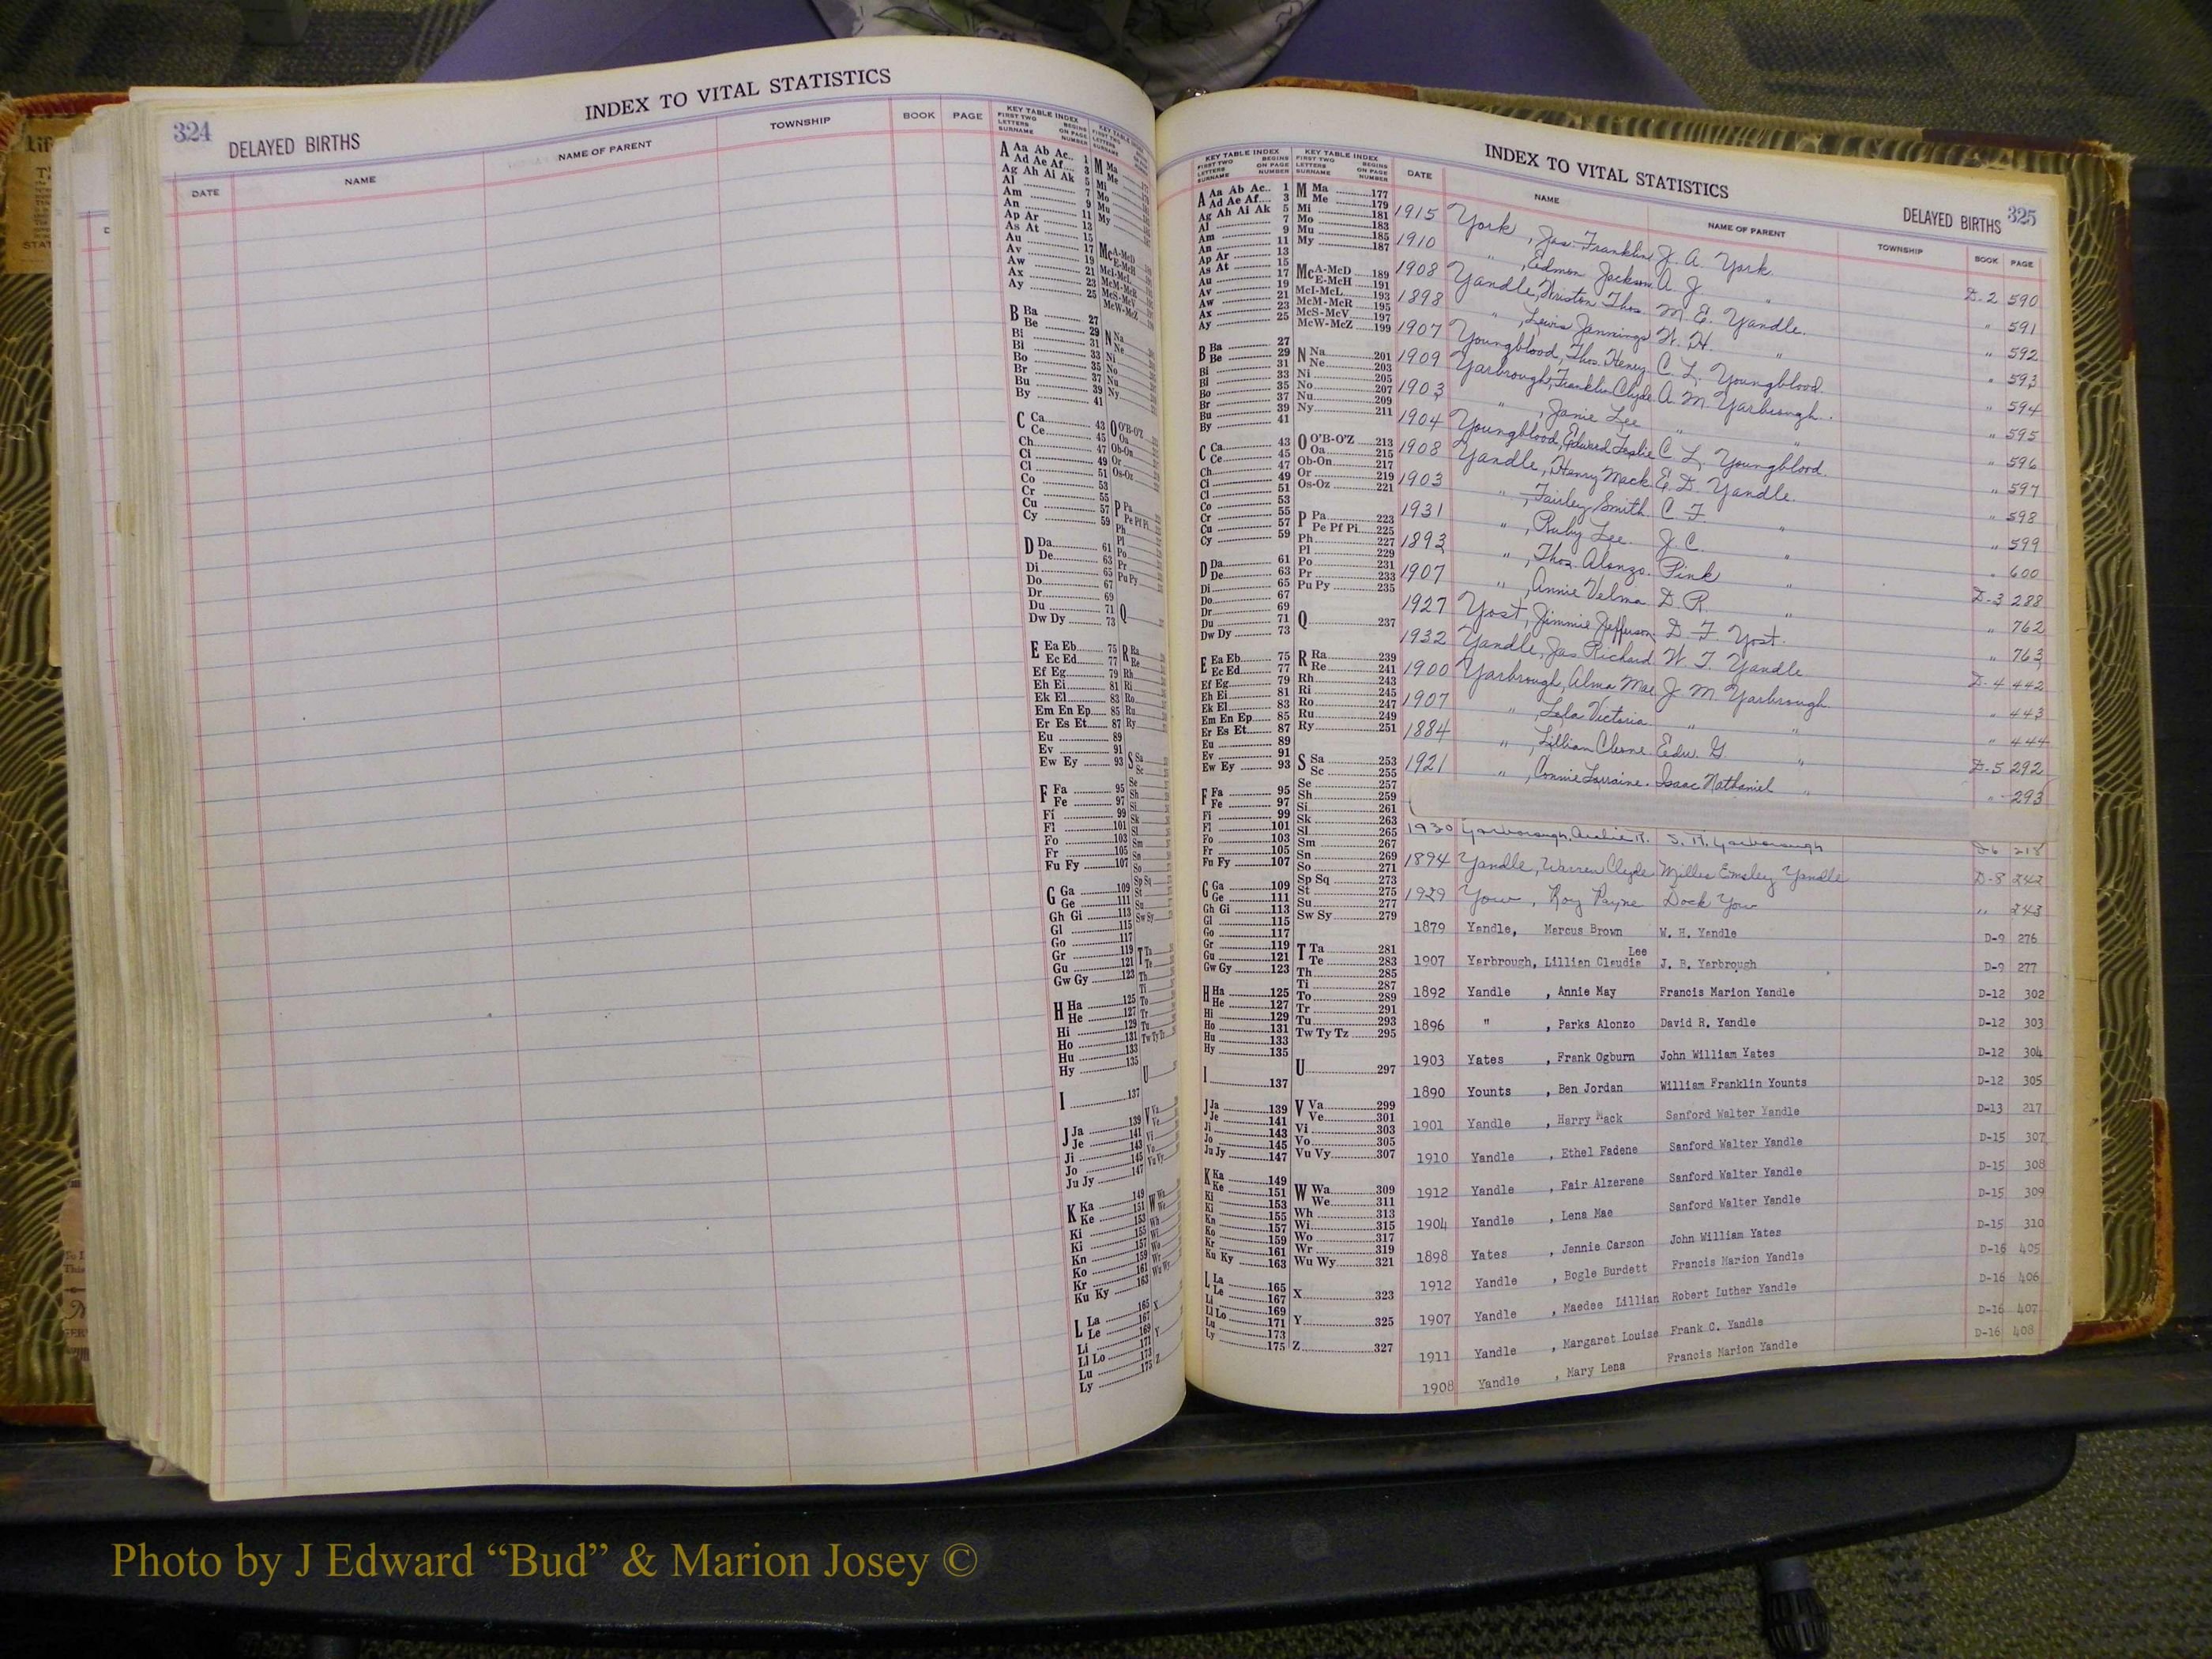 324
DELAYED BIRTHS
INDEX TO VITAL STATISTICS
DATE NAME NAME OF PARENT TOWNSHIP BOOK PAGE
KEY TABLE INDEX
FIRST TWO LETTERS SURNAME BEGINS ON PAGE NUMBER
A Aa Ab Ac.. 1
Ad Ae Af.... 3
Ag Ah Ai Ak 5
Al 7
Am 9
An 11
Ap Ar 13
As At 15
Au 17
Av 19
Aw 21
Ax 23
Ay 25
B Ba 27
Be 29
Bi 31
Bl 33
Bo 35
Br 37
Bu 39
By 41
C Ca 43
Ce 45
Ch 47
Ci 49
Cl 51
Co 53
Cr 55
Cu 57
Cy 59
D Da 61
De 63
Di 65
Do 67
Dr 69
Du 71
Dw Dy 73
E Ea Eb 75
Ec Ed 77
Ef Eg 79
Eh Ei 81
Ek El 83
Em En Ep 85
Er Es Et 87
Eu 89
Ev 91
Ew Ey 93
F Fa 95
Fe 97
Fi 99
Fl 101
Fo 103
Fr 105
Fu Fy 107
G Ga 109
Ge 111
Gh Gi 113
Gl 115
Go 117
Gr 119
Gu 121
Gw Gy 123
H Ha 125
He 127
Hi 129
Ho 131
Hu 133
Hy 135
I 137
J Ja 139
Je 141
Ji 143
Jo 145
Ju Jy 147
K Ka 149
Ke 151
Ki 153
Kl 155
Kn 157
Ko 159
Kr 161
Ku Ky 163
L La 165
Le 167
Li 169
Ll Lo 171
Lu 173
Ly 175
INDEX TO VITAL STATISTICS
DELAYED BIRTHS 325
KEY TABLE INDEX
FIRST TWO LETTERS SURNAME BEGINS ON PAGE NUMBER
M Ma 177
Me 179
Mi 181
Mo 183
Mu 185
My 187
Mc A-McD 189
E-McH 191
McI-McL 193
McM-McR 195
McS-McV 197
McW-McZ 199
N Na 201
Ne 203
Ni 205
No 207
Nu 209
Ny 211
O O'B-O'Z 213
Oa 215
Ob-On 217
Or 219
Os-Oz 221
P Pa 223
Pe Pf Pi 225
Ph 227
Pl 229
Po 231
Pr 233
Pu Py 235
Q 237
R Ra 239
Re 241
Rh 243
Ri 245
Ro 247
Ru 249
Ry 251
S Sa 253
Sc 255
Se 257
Sh 259
Si 261
Sk 263
Sl 265
Sm 267
Sn 269
So 271
Sp Sq 273
St 275
Su 277
Sw Sy 279
T Ta 281
Te 283
Th 285
Ti 287
To 289
Tr 291
Tu 293
Tw Ty Tz 295
U 297
V Va 299
Ve 301
Vi 303
Vo 305
Vu Vy 307
W Wa 309
We 311
Wh 313
Wi 315
Wo 317
Wr 319
Wu Wy 321
X 323
Y 325
Z 327
DATE NAME NAME OF PARENT TOWNSHIP BOOK PAGE
1915 York, Jas. Franklin J. A. York D-2 590
1910 " , Edmon Jackson A. J. " " 591
1908 Yandle, Thos. M. E. Yandle. " 592
1898 " , Lewis Jennings W. H. " " 593
1907 Youngblood, Thos. Henry C. L. Youngblood. " 594
1909 Yarbrough, Franklin Clyde A. M. Yarbrough. " 595
1903 " , Janie Lee " " " 596
1904 Youngblood, Edward Leslie C. L. Youngblood. " 597
1908 Yandle, Henry Mack E. D. Yandle. " 598
1903 " , Fairley Smith C. F. " " 599
1931 " , Ruby Lee. J. C. " " 600
1893 " , Thos. Alonzo. Pink " D-3 288
1907 " , Annie Velma D. R. " " 762
1927 Yost, Jimmie Jefferson D. F. Yost. " 763
1932 Yandle, Jas Richard W. T. Yandle D-4 442
1900 Yarbrough, Alma Mae J. M. Yarbrough " 443
1907 " , Lela Victoria " " " 444
1884 " , Lillian Cleone Edw. G. " D-5 292
1921 " , Connie Lorraine. Isaac Nathaniel " " 293
1930 Yarborough, Archie R. S. R. Yarborough D-6 218
1894 Yandle, Warren Clyde Milles Emsley Yandle D-8 242
1929 Yow, Roy Payne Dock Yow " 243
1879 Yandle, Marcus Brown W. H. Yandle D-9 276
1907 Yarbrough, Lillian Claudia Lee J. B. Yarbrough D-9 277
1892 Yandle , Annie May Francis Marion Yandle D-12 302
1896 " , Parks Alonzo David R. Yandle D-12 303
1903 Yates , Frank Ogburn John William Yates D-12 304
1890 Younts , Ben Jordan William Franklin Younts D-12 305
1901 Yandle , Harry Mack Sanford Walter Yandle D-13 217
1910 Yandle , Ethel Fadene Sanford Walter Yandle D-15 307
1912 Yandle , Fair Alzerene Sanford Walter Yandle D-15 308
1904 Yandle , Lena Mae Sanford Walter Yandle D-15 309
1898 Yates , Jennie Carson John William Yates D-15 310
1912 Yandle , Bogle Burdett Francis Marion Yandle D-16 405
1907 Yandle , Maedee Lillian Robert Luther Yandle D-16 406
1911 Yandle , Margaret Louise Frank C. Yandle D-16 407
1908 Yandle , Mary Lena Francis Marion Yandle D-16 408
Photo by J Edward “Bud” & Marion Josey ©